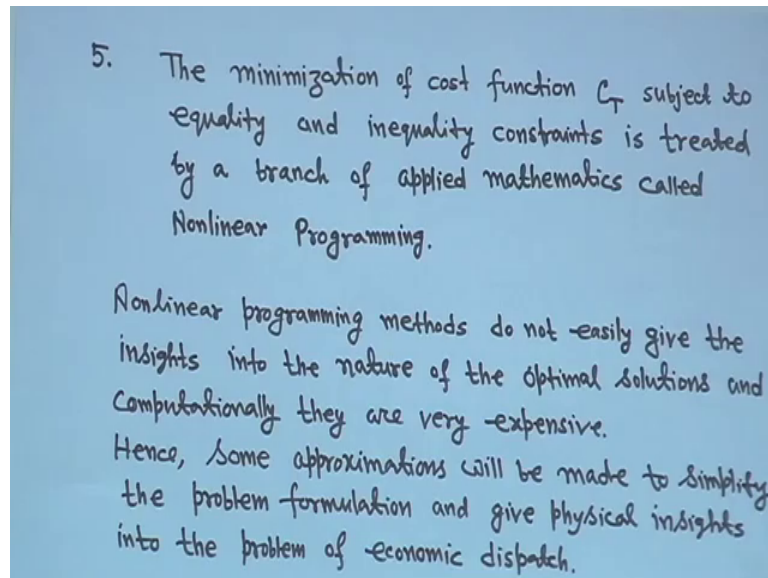 5. The minimization of cost function C_T subject to
equality and inequality constraints is treated
by a branch of applied mathematics called
Nonlinear Programming.
Nonlinear programming methods do not easily give the
insights into the nature of the optimal solutions and
Computationally they are very expensive.
Hence, some approximations will be made to simplify
the problem formulation and give physical insights
into the problem of economic dispatch.